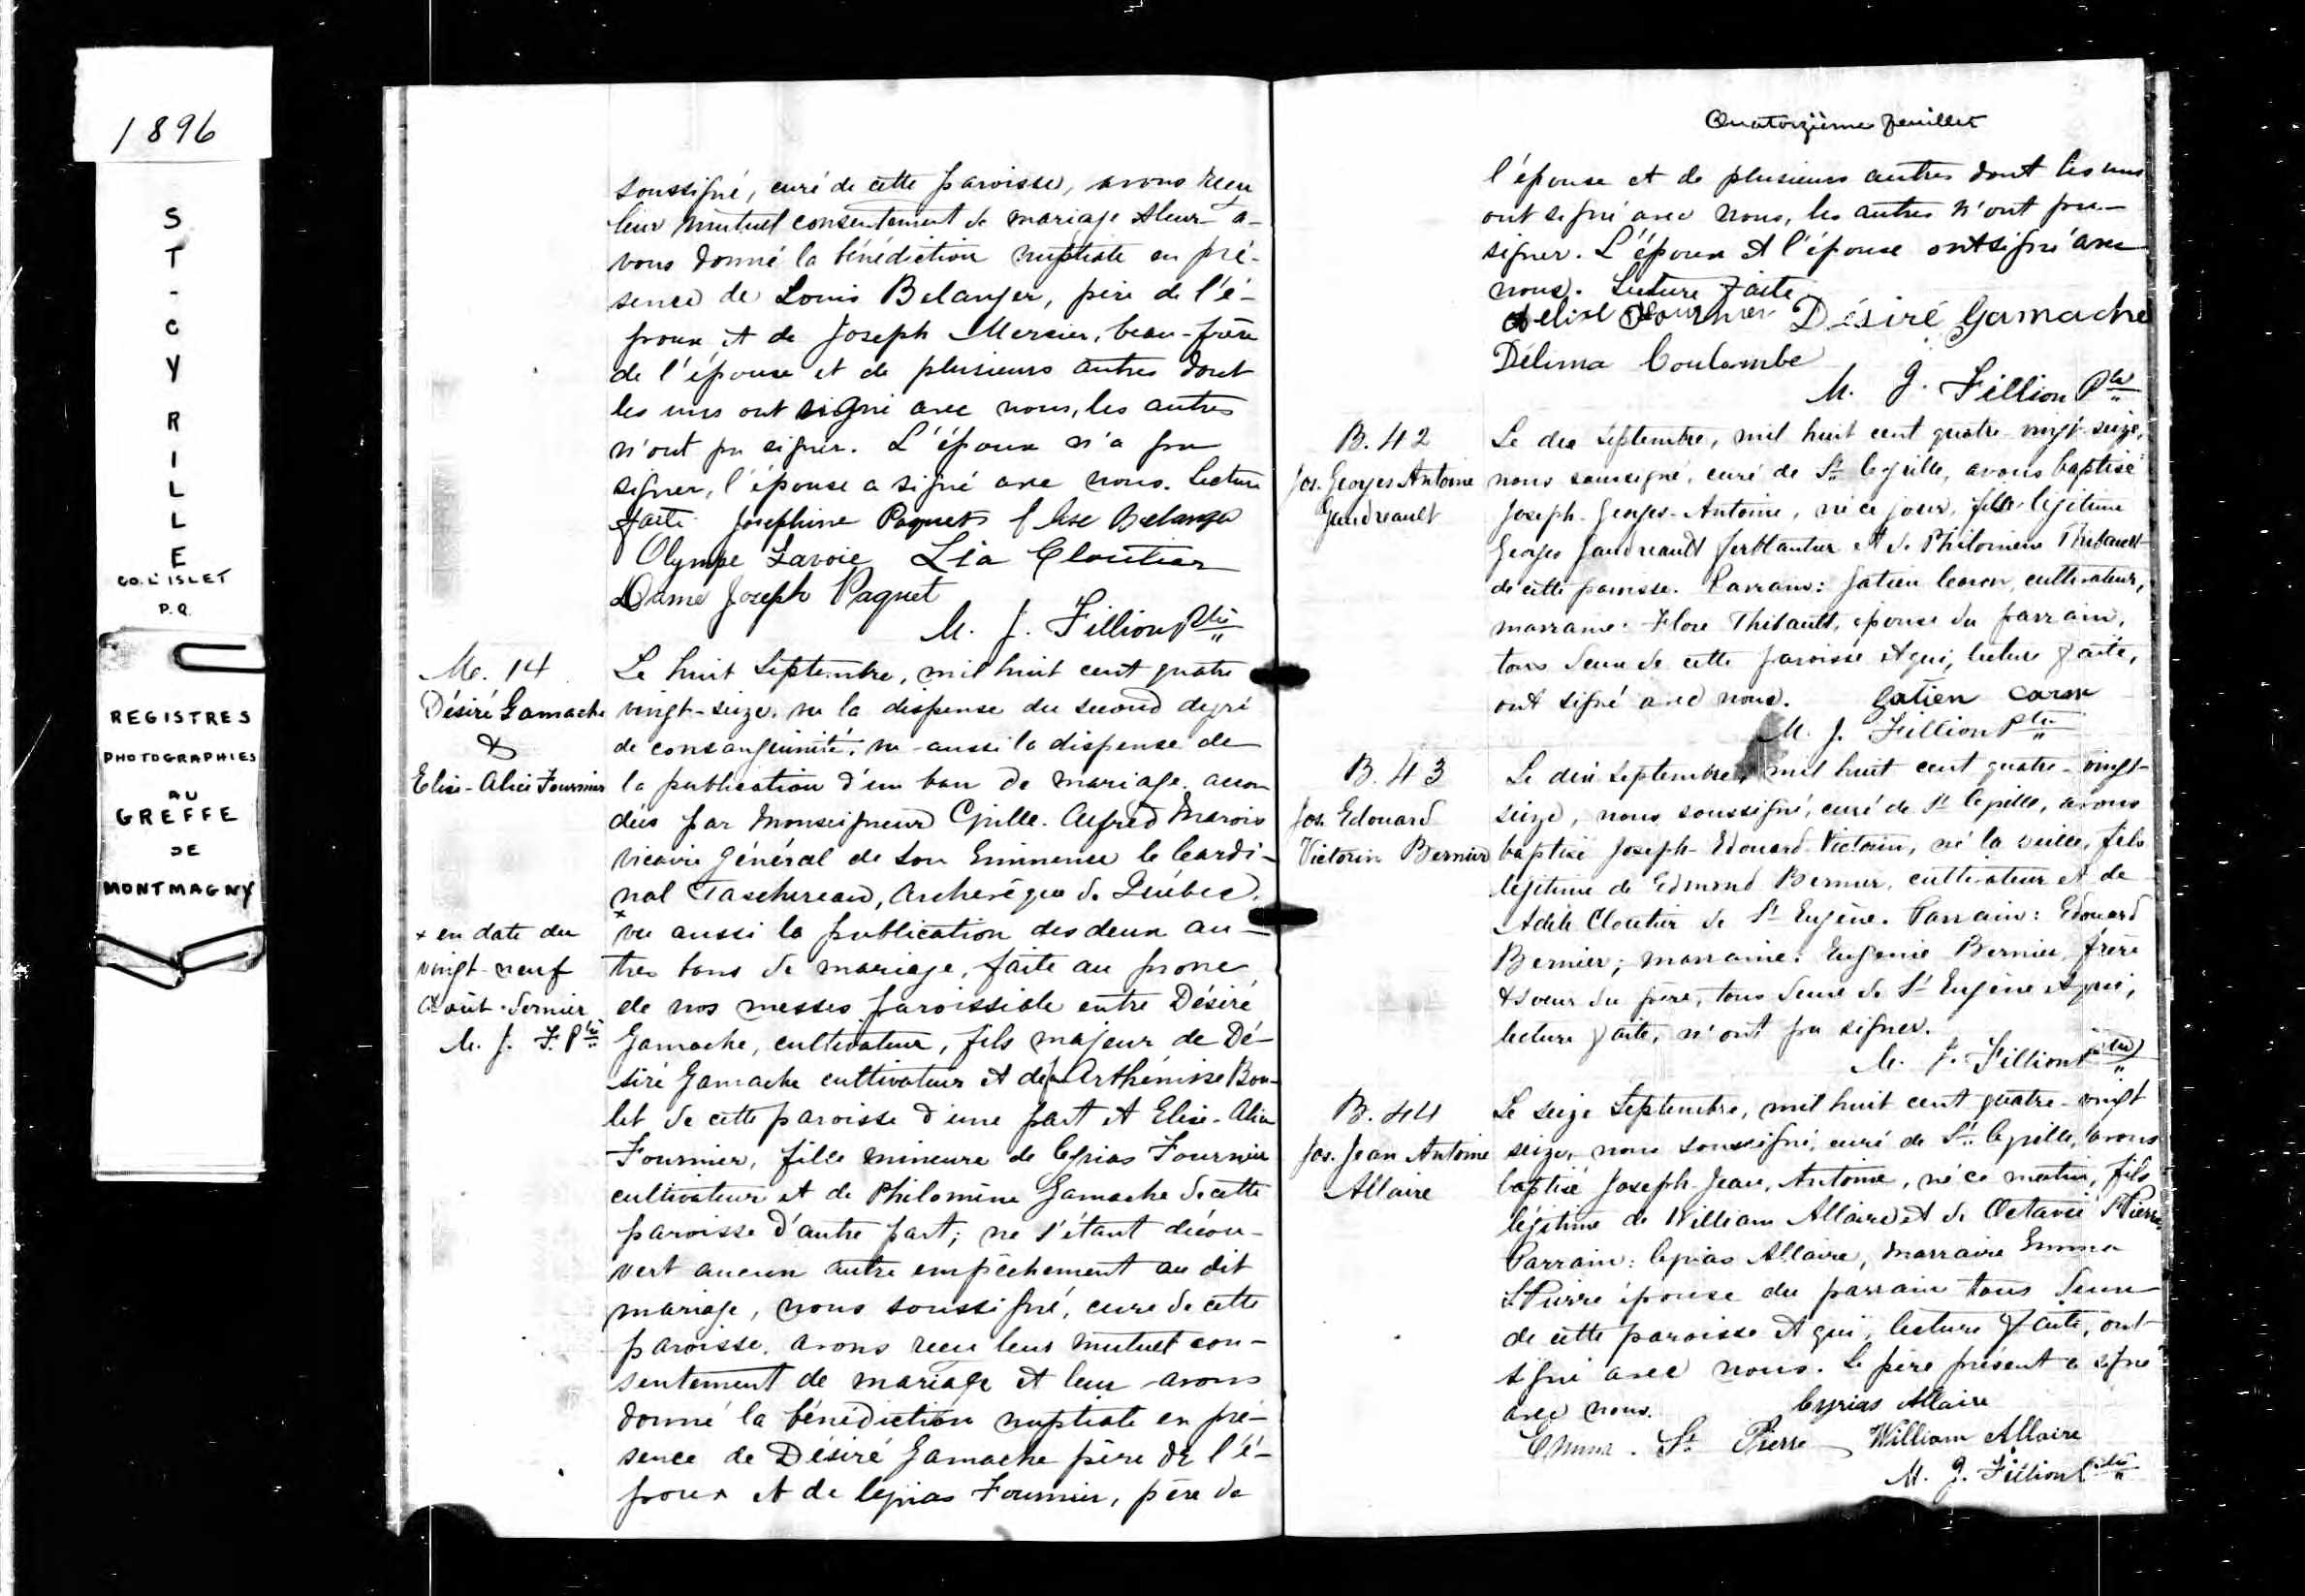 1896
ST-CYRILLE
CO. L'ISLET
P.Q.
REGISTRES
PHOTOGRAPHIES
AU
GREFFE
DE
MONTMAGNY
soussigné, curé de cette paroisse, avons reçu
leur mutuel consentement de mariage & leur a-
vons donné la bénédiction nuptiale en pré-
sence de Louis Belanger, père de l'é-
poux et de Joseph Mercier, beau-frère
de l'épouse et de plusieurs autres dont
les uns ont signé avec nous, les autres
n'ont pu signer. L'époux n'a pu
signer, l'épouse a signé avec nous. Lecture
faite. Josephine Paquet Belanger
Olympe Lavoie Léa Cloutier
Dame Joseph Paquet
M. J. Fillion Ptre
M. 14
Désiré Gamache
&
Elise-Alice Fournier
Le huit Septembre, mil huit cent quatre
vingt-seize, vu la dispense du second degré
de consanguinité, vu aussi la dispense de
la publication d'un ban de mariage accor
dées par Monseigneur Cyrille-Alfred Marois
Vicaire Général de Son Eminence le Cardi-
nal Taschereau, Archevêque de Québec,
x vu aussi la publication des deux au-
tres bans de mariage, faite au prone
de nos messes paroissiale entre Désiré
Gamache, cultivateur, fils majeur de Dé-
siré Gamache cultivateur et de Arthémise Bou-
let de cette paroisse d'une part et Elise-Alice
Fournier, fille mineure de Cyrias Fournier
cultivateur et de Philomène Gamache de cette
paroisse d'autre part; ne s'étant décou-
vert aucun autre empêchement au dit
mariage, nous soussigné, curé de cette
paroisse, avons reçu leur mutuel con-
sentement de mariage et leur avons
donné la bénédiction nuptiale en pré-
sence de Désiré Gamache père de l'é-
poux et de Cyrias Fournier, père de
x en date du
vingt-neuf
Août dernier
M. J. F. Ptre
Quatorzième feuillet
l'épouse et de plusieurs autres dont les uns
ont signé avec nous, les autres n'ont pu
signer. L'époux et l'épouse ont signé avec
nous. Lecture faite
Fournier Désiré Gamache
Délima Coulombe
M. J. Fillion Ptre
B. 42
Jos. Georges Antoine
Gaudreault
Le dix Septembre, mil huit cent quatre-vingt-seize,
nous soussigné, curé de St Cyrille, avons baptisé
Joseph-Georges-Antoine, né ce jour, fils légitime
Georges Gaudreault ferblantier et de Philomène Thibault
de cette paroisse. Parrain: Gatien Caron, cultivateur,
marraine: Flore Thibault, épouse du parrain,
tous deux de cette paroisse et qui, lecture faite,
ont signé avec nous. Gatien Caron
M. J. Fillion Ptre
B. 43
Jos. Edouard
Victorin Bernier
Le dix Septembre, mil huit cent quatre-vingt-
seize, nous soussigné, curé de St Cyrille, avons
baptisé Joseph-Edouard-Victorin, né la veille, fils
légitime de Edmond Bernier, cultivateur et de
Adèle Cloutier de St Eugène. Parrain: Edouard
Bernier; marraine: Eugenie Bernier, frère
& soeur du père, tous deux de St Eugène et qui,
lecture faite, n'ont pu signer.
M. J. Fillion Ptre
B. 44
Jos. Jean Antoine
Allaire
Le seize Septembre, mil huit cent quatre-vingt
seize, nous soussigné, curé de St Cyrille, avons
baptisé Joseph-Jean, Antoine, né ce matin, fils
légitime de William Allaire et de Octavie St Pierre,
Parrain: Cyrias Allaire, marraine Emma
St Pierre épouse du parrain tous deux
de cette paroisse et qui, lecture faite, ont
signé avec nous. Le père présent a signé
avec nous. Cyrias Allaire
Emma St Pierre William Allaire
M. J. Fillion Ptre